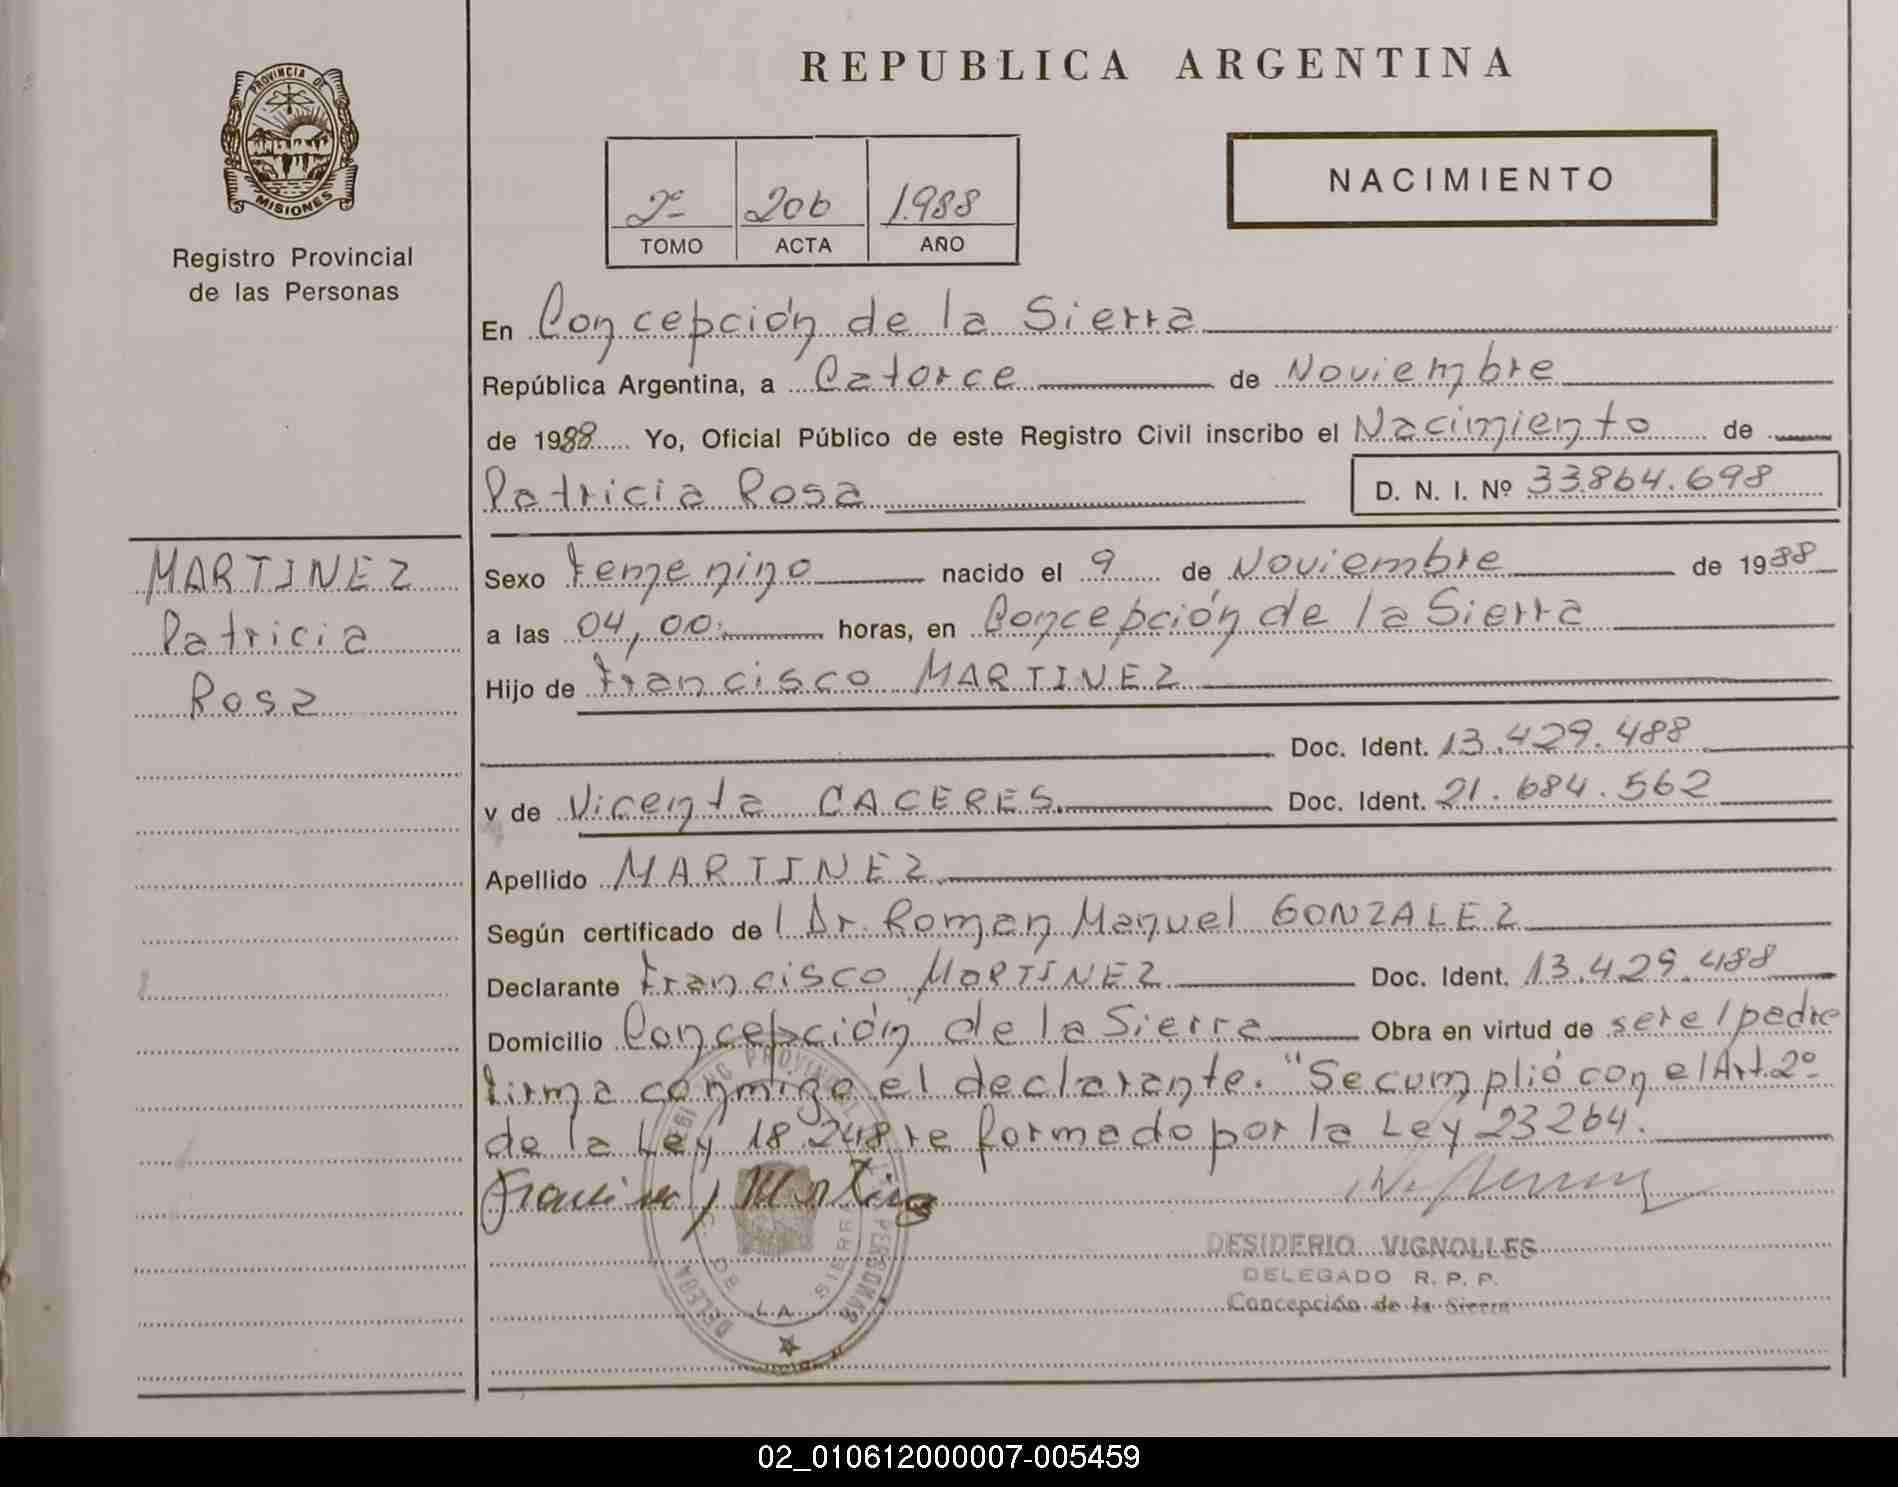 REPUBLICA ARGENTINA
PROVINCIA DE
MISIONES
Registro Provincial
de las Personas
2º 206 1.988
TOMO ACTA AÑO
NACIMIENTO
En Concepción de la Sierra
República Argentina, a Catorce de Noviembre
de 1988 Yo, Oficial Público de este Registro Civil inscribo el Nacimiento de
Patricia Rosa D. N. I. Nº 33.864.698
MARTINEZ
Patricia
Rosa
Sexo Femenino nacido el 9 de Noviembre de 1988
a las 04,00 horas, en Concepción de la Sierra
Hijo de Francisco MARTINEZ
Doc. Ident. 13.429.488
y de Vicenta CACERES Doc. Ident. 21.684.562
Apellido MARTINEZ
Según certificado de l Dr. Roman Manuel GONZALEZ
Declarante Francisco MARTINEZ Doc. Ident. 13.429.488
Domicilio Concepción de la Sierra Obra en virtud de ser el padre
firma conmigo el declarante. "Se cumplió con el Art. 2º
de la Ley 18.248 reformado por la Ley 23264.
Francisco Martinez
DESIDERIO VIGNOLLES
DELEGADO R. P. P.
Concepción de la Sierra
DE LA SIERRA
02_010612000007-005459